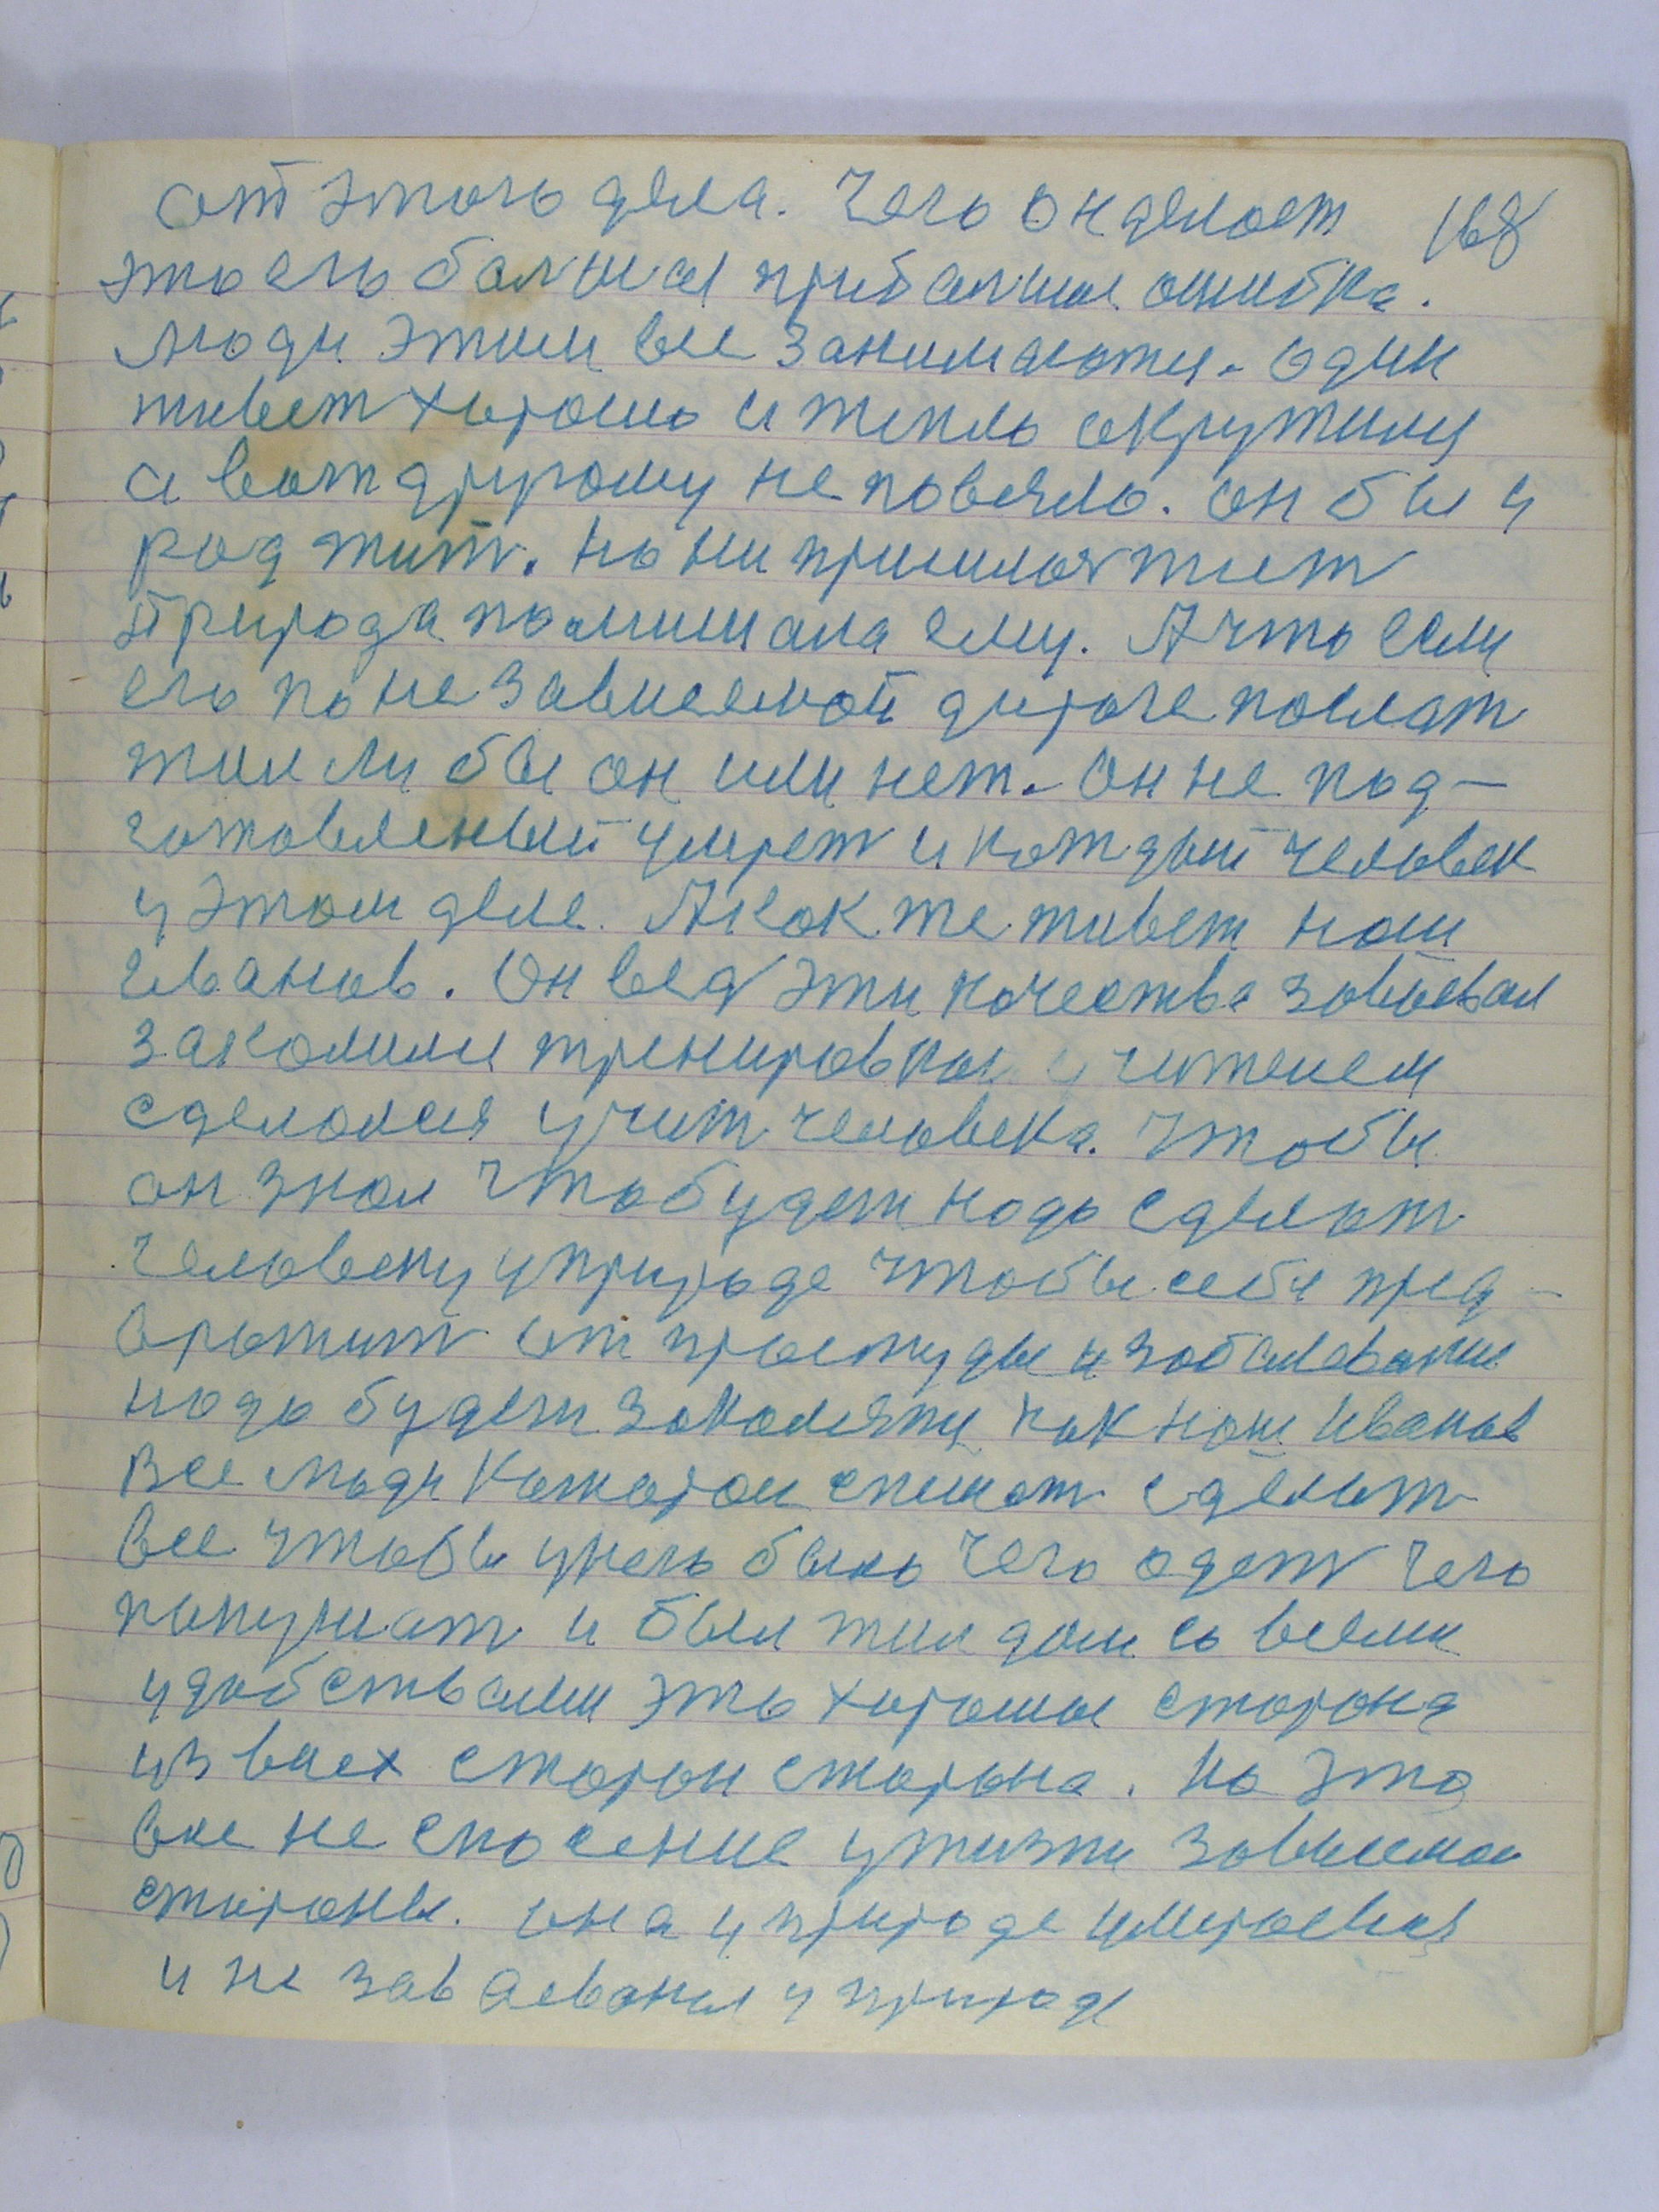 от этого дела. Чего он делает 168
это его балшая прибалшая ошибка.
Люди этим все занимаются. один
живет хорошо и тепло окружился
а вот другому не повезло. он бы и
рад жит. но ни пришлос жит
Природа помишала ему. А что если
его по не зависемой дороге послат
жил ли бы он или нет. Он не под-
готовленый умрет и каждый человек
у этом деле. А как же живет наш
Иванов. Он вед эти качества завоевал
закалили тренировкой учителем
сделался учит человека. Чтобы
он знал что будет надо сделат
человеку у природе чтобы себя пред-
вратит от простуды и заболевание
надо будет закалятся как наш Иванов
Все люди которые спишат сделат
все чтобы у него было чего одет чего
покушат и был жил дом со всеми
удобствами это хорошая сторона
из всех сторон сторона. Но это
все не спосение у жизни зависемой
стороны. она у природе умираемая
и не заваеваная у природе